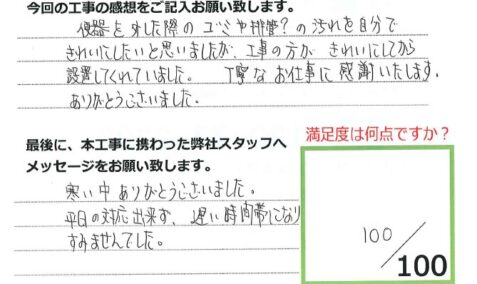 今回の工事の感想をご記入お願い致します。
便器を外した際のゴミや排管?の汚れを自分で
きれいにしたいと思いましたが、工事の方が きれいにしてから
設置してくれていました。 丁寧なお仕事に感謝いたします。
ありがとうございました。
最後に、本工事に携わった弊社スタッフへ
メッセージをお願い致します。
寒い中ありがとうございました。
平日の対応出来ず、遅い時間帯になり
すみませんでした。
満足度は何点ですか?
100
100